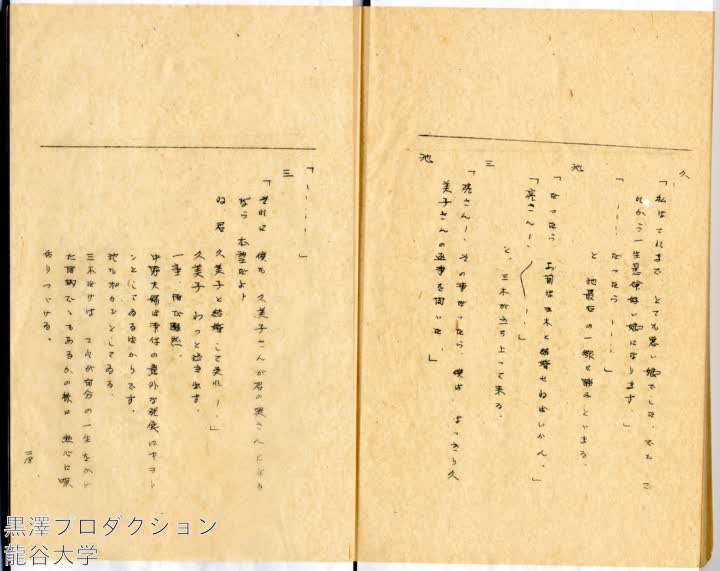 久
「私はこれまで とても悪い娘でした、でも こ
れから一生懸命好い娘になります」
「……… なったら ―――」
池
と 池最后の一線に踏みとゞまる、
「なったら お前は三木と結婚せねばいかん、」
「亮さん！、―――！、」
三
と、三木が立ち上って来る、
「亮さん！、その事だったら 僕は はっきり久
池
美子さんの返事を聞いた、」
「………！」
三
「それは 僕も 久美子さんが君の奥さんになる
なら 本望だよ！
ね、君 久美子と結婚して呉れ！、」
久美子 わっと泣き出す、
一座 再び 黯然、
中野夫婦は事件の意外な発展にキョト
ンとしてゐるばかりです、
池もポカンとしてゐる、
三木だけは これが自分の一生をかけ
た目的でゞもあるかの様に 熱心に喋
りつゞける。
黒澤プロダクション
龍谷大学